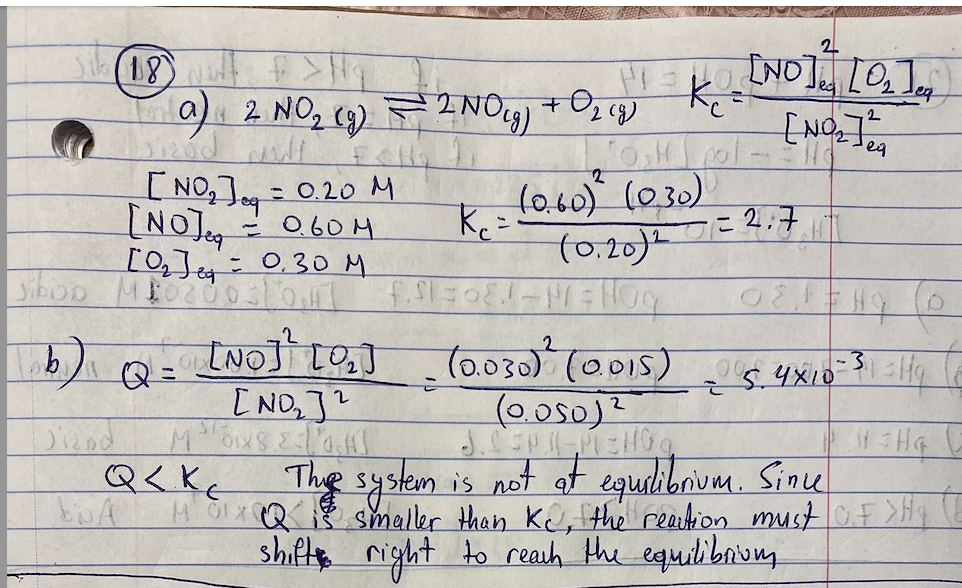 18
a) 2 NO₂ (g) ⇌ 2 NO(g) + O₂ (g) Kc = [NO]²eq [O₂]eq / [NO₂]²eq
[NO₂]eq = 0.20 M
[NO]eq = 0.60 M
[O₂]eq = 0.30 M
Kc = (0.60)² (0.30) / (0.20)² = 2.7
b) Q = [NO]² [O₂] / [NO₂]² = (0.030)² (0.015) / (0.050)² = 5.4x10⁻³
Q < Kc The system is not at equilibrium. Since
Q is smaller than Kc, the reaction must
shift right to reach the equilibrium